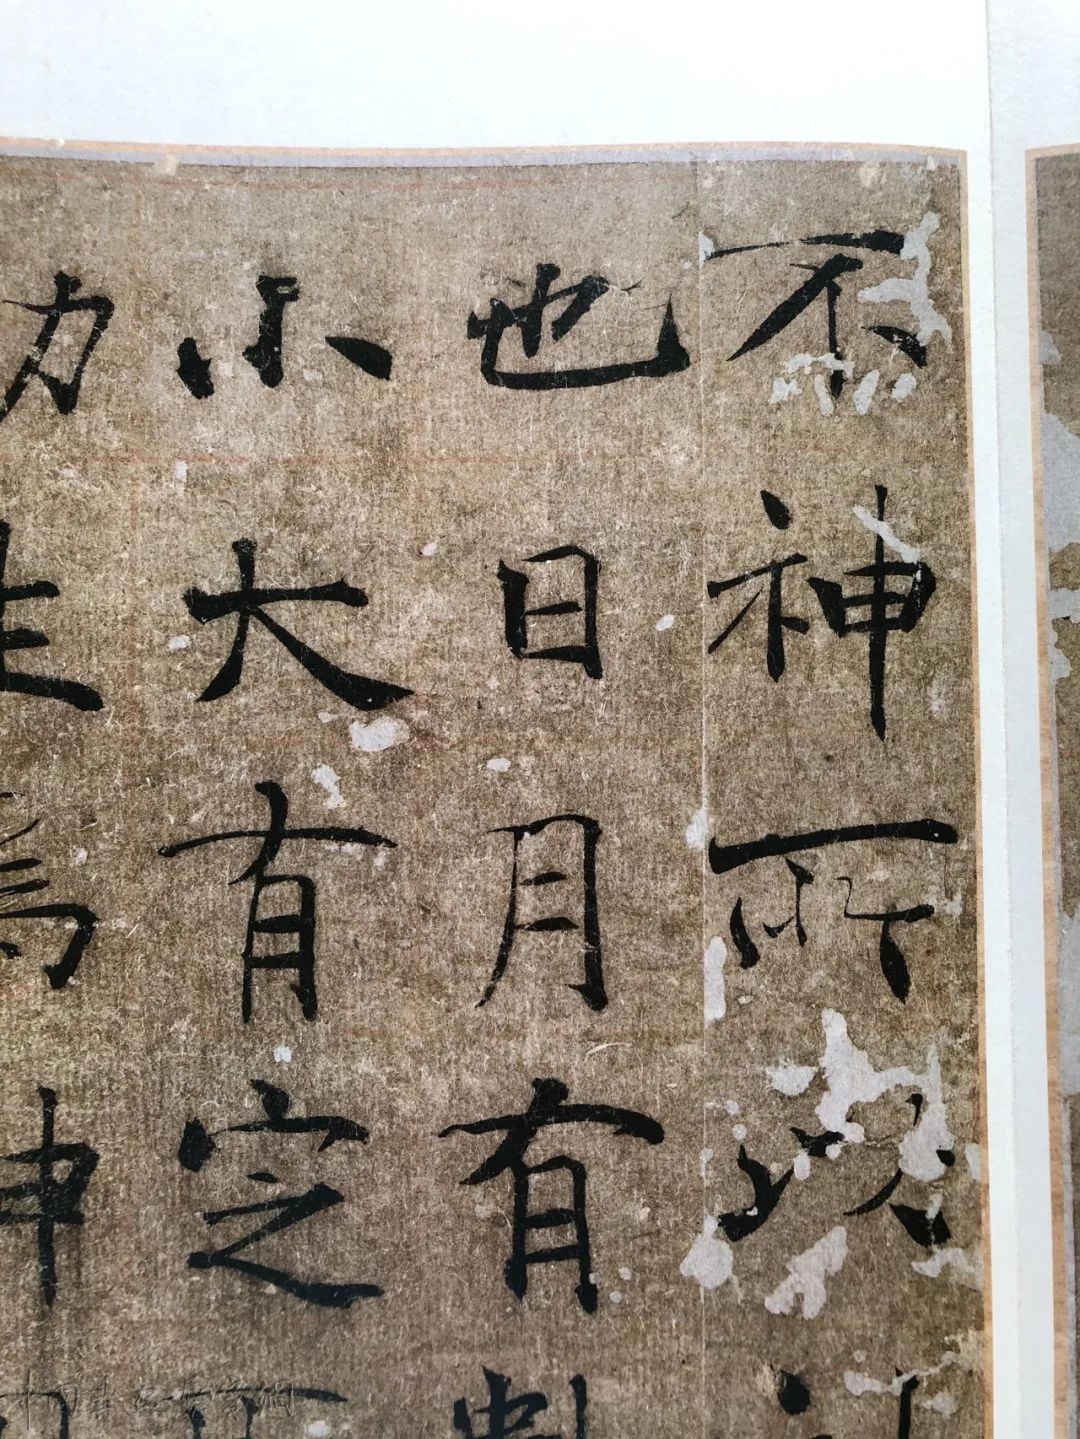 不神所以
也日月有
小大有定
功生焉神